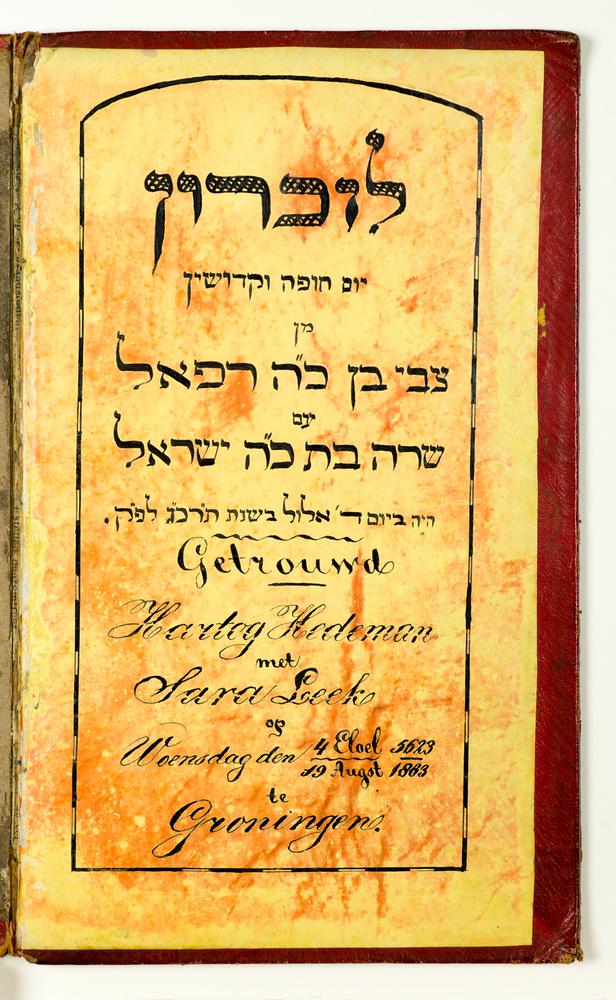 לזכרון
יום חופה וקדושין
מן
צבי בן כ"ה רפאל
עם
שרה בת כ"ה ישראל
היה ביום ד' אלול בשנת תרכ"ג לפ"ק.
Getrouwd
Hartog Hedeman
met
Sara Leek
op
Woensdag den 4 Eloel 5623
19 Augst 1863
te
Groningen.